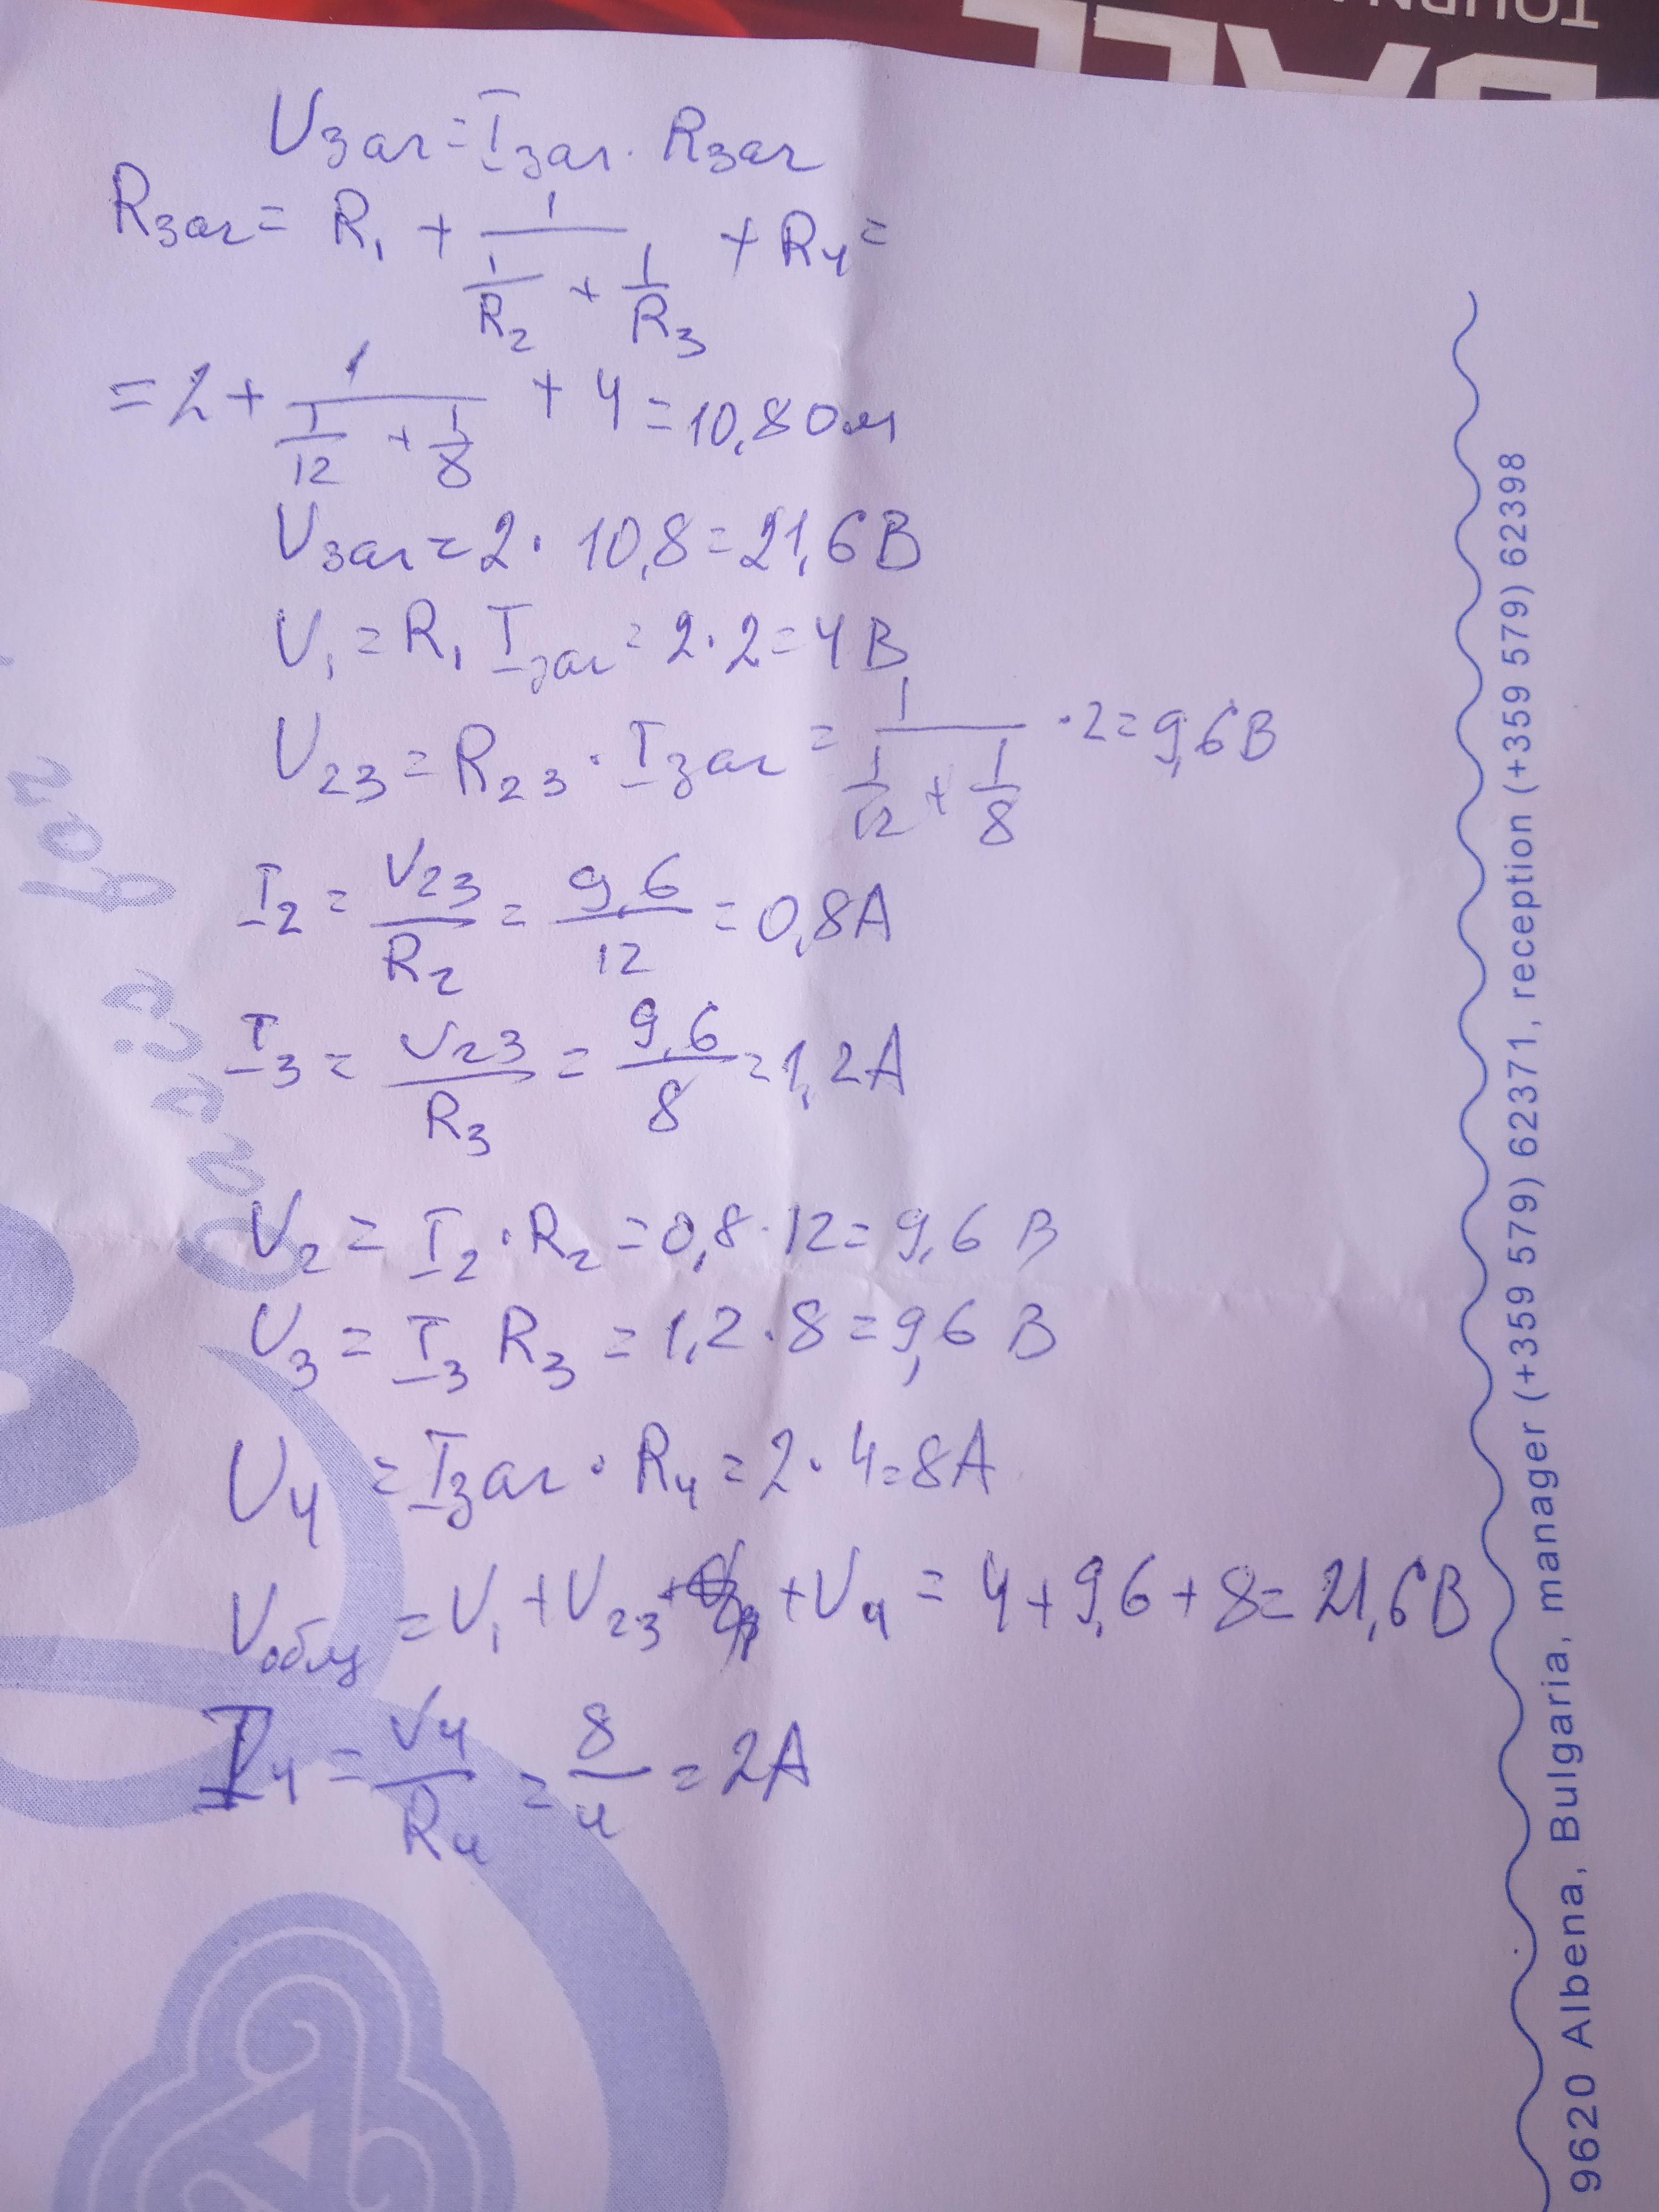 TOURN
BALL
Uзаг = Iзаг · Rзаг
Rзаг = R₁ + 1/(1/R₂ + 1/R₃) + R₄ =
= 2 + 1/(1/12 + 1/8) + 4 = 10,8 Ом
Uзаг = 2 · 10,8 = 21,6 В
U₁ = R₁ Iзаг = 2 · 2 = 4 В
U₂₃ = R₂₃ · Iзаг = 1/(1/12 + 1/8) · 2 = 9,6 В
I₂ = U₂₃/R₂ = 9,6/12 = 0,8 А
I₃ = U₂₃/R₃ = 9,6/8 = 1,2 А
U₂ = I₂ · R₂ = 0,8 · 12 = 9,6 В
U₃ = I₃ R₃ = 1,2 · 8 = 9,6 В
U₄ = Iзаг · R₄ = 2 · 4 = 8 А
Uобщ = U₁ + U₂₃ + U₄ = 4 + 9,6 + 8 = 21,6 В
I₄ = U₄/R₄ = 8/4 = 2 А
9620 Albena, Bulgaria, manager (+359 579) 62371, reception (+359 579) 62398